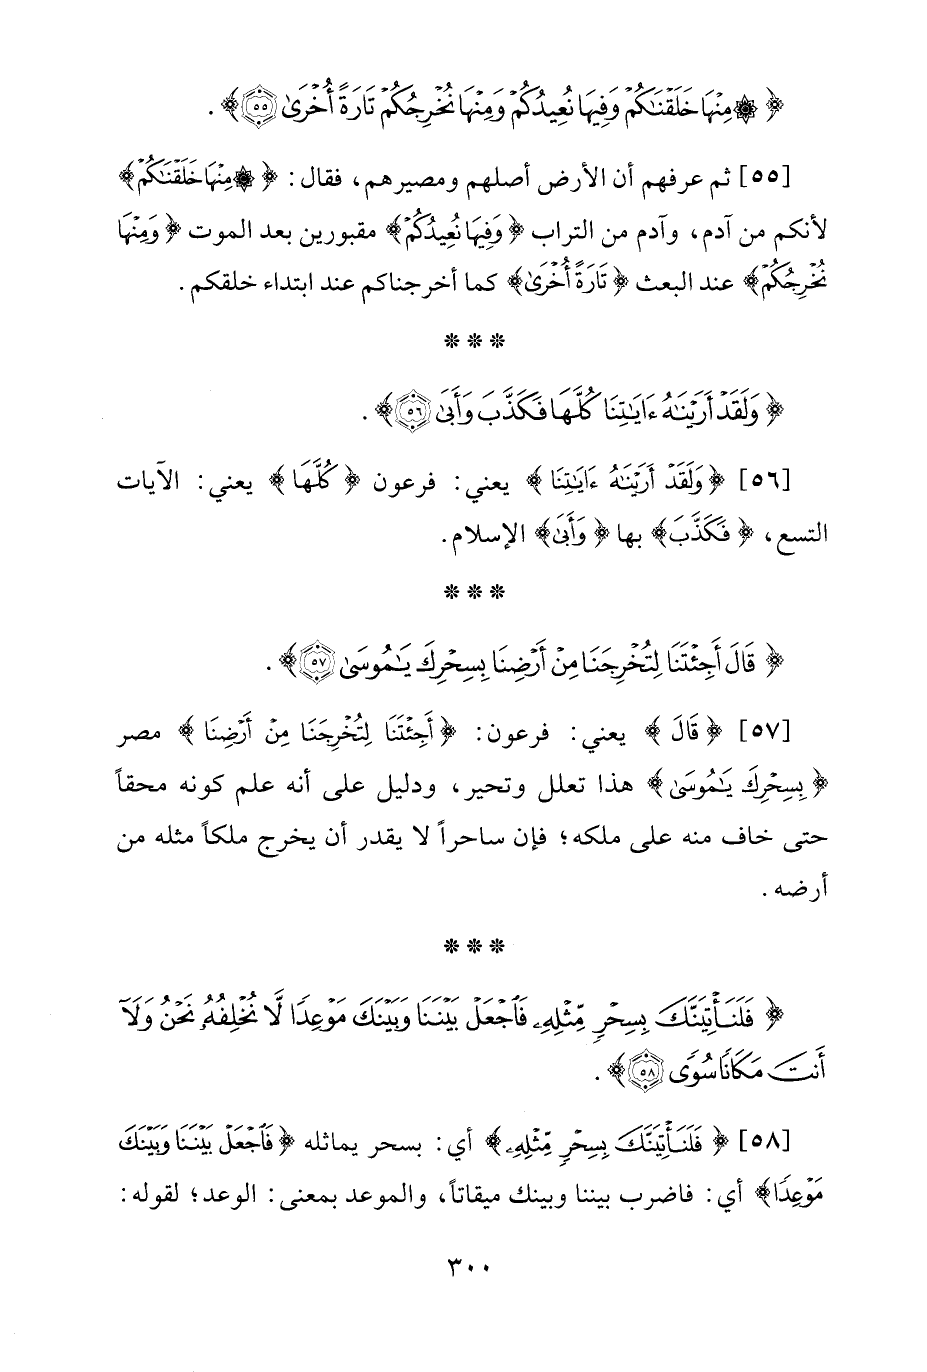 ﴿ ۞ مِنْهَا خَلَقْنَٰكُمْ وَفِيهَا نُعِيدُكُمْ وَمِنْهَا نُخْرِجُكُمْ تَارَةً أُخْرَىٰ ٥٥ ﴾ .
[٥٥] ثم عرفهم أن الأرض أصلهم ومصيرهم، فقال: ﴿ ۞ مِنْهَا خَلَقْنَٰكُمْ ﴾
لأنكم من آدم، وآدم من التراب ﴿ وَفِيهَا نُعِيدُكُمْ ﴾ مقبورين بعد الموت ﴿ وَمِنْهَا
نُخْرِجُكُمْ ﴾ عند البعث ﴿ تَارَةً أُخْرَىٰ ﴾ كما أخرجناكم عند ابتداء خلقكم .
* * *
﴿ وَلَقَدْ أَرَيْنَٰهُ ءَايَٰتِنَا كُلَّهَا فَكَذَّبَ وَأَبَىٰ ٥٦ ﴾ .
[٥٦] ﴿ وَلَقَدْ أَرَيْنَٰهُ ءَايَٰتِنَا ﴾ يعني: فرعون ﴿ كُلَّهَا ﴾ يعني: الآيات
التسع، ﴿ فَكَذَّبَ ﴾ بها ﴿ وَأَبَىٰ ﴾ الإسلام.
* * *
﴿ قَالَ أَجِئْتَنَا لِتُخْرِجَنَا مِنْ أَرْضِنَا بِسِحْرِكَ يَٰمُوسَىٰ ٥٧ ﴾ .
[٥٧] ﴿ قَالَ ﴾ يعني: فرعون: ﴿ أَجِئْتَنَا لِتُخْرِجَنَا مِنْ أَرْضِنَا ﴾ مصر
﴿ بِسِحْرِكَ يَٰمُوسَىٰ ﴾ هذا تعلل وتحير، ودليل على أنه علم كونه محقاً
حتى خاف منه على ملكه؛ فإن ساحراً لا يقدر أن يخرج ملكاً مثله من
أرضه .
* * *
﴿ فَلَنَأْتِيَنَّكَ بِسِحْرٍ مِّثْلِهِۦ فَٱجْعَلْ بَيْنَنَا وَبَيْنَكَ مَوْعِدًا لَّا نُخْلِفُهُۥ نَحْنُ وَلَآ
أَنتَ مَكَانًا سُوًى ٥٨ ﴾ .
[٥٨] ﴿ فَلَنَأْتِيَنَّكَ بِسِحْرٍ مِّثْلِهِۦ ﴾ أي: بسحر يماثله ﴿ فَٱجْعَلْ بَيْنَنَا وَبَيْنَكَ
مَوْعِدًا ﴾ أي: فاضرب بيننا وبينك ميقاتاً، والموعد بمعنى: الوعد؛ لقوله:
٣٠٠